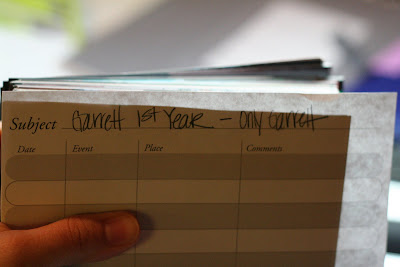 Subject Garrett 1st Year - only Garrett
Date Event Place Comments